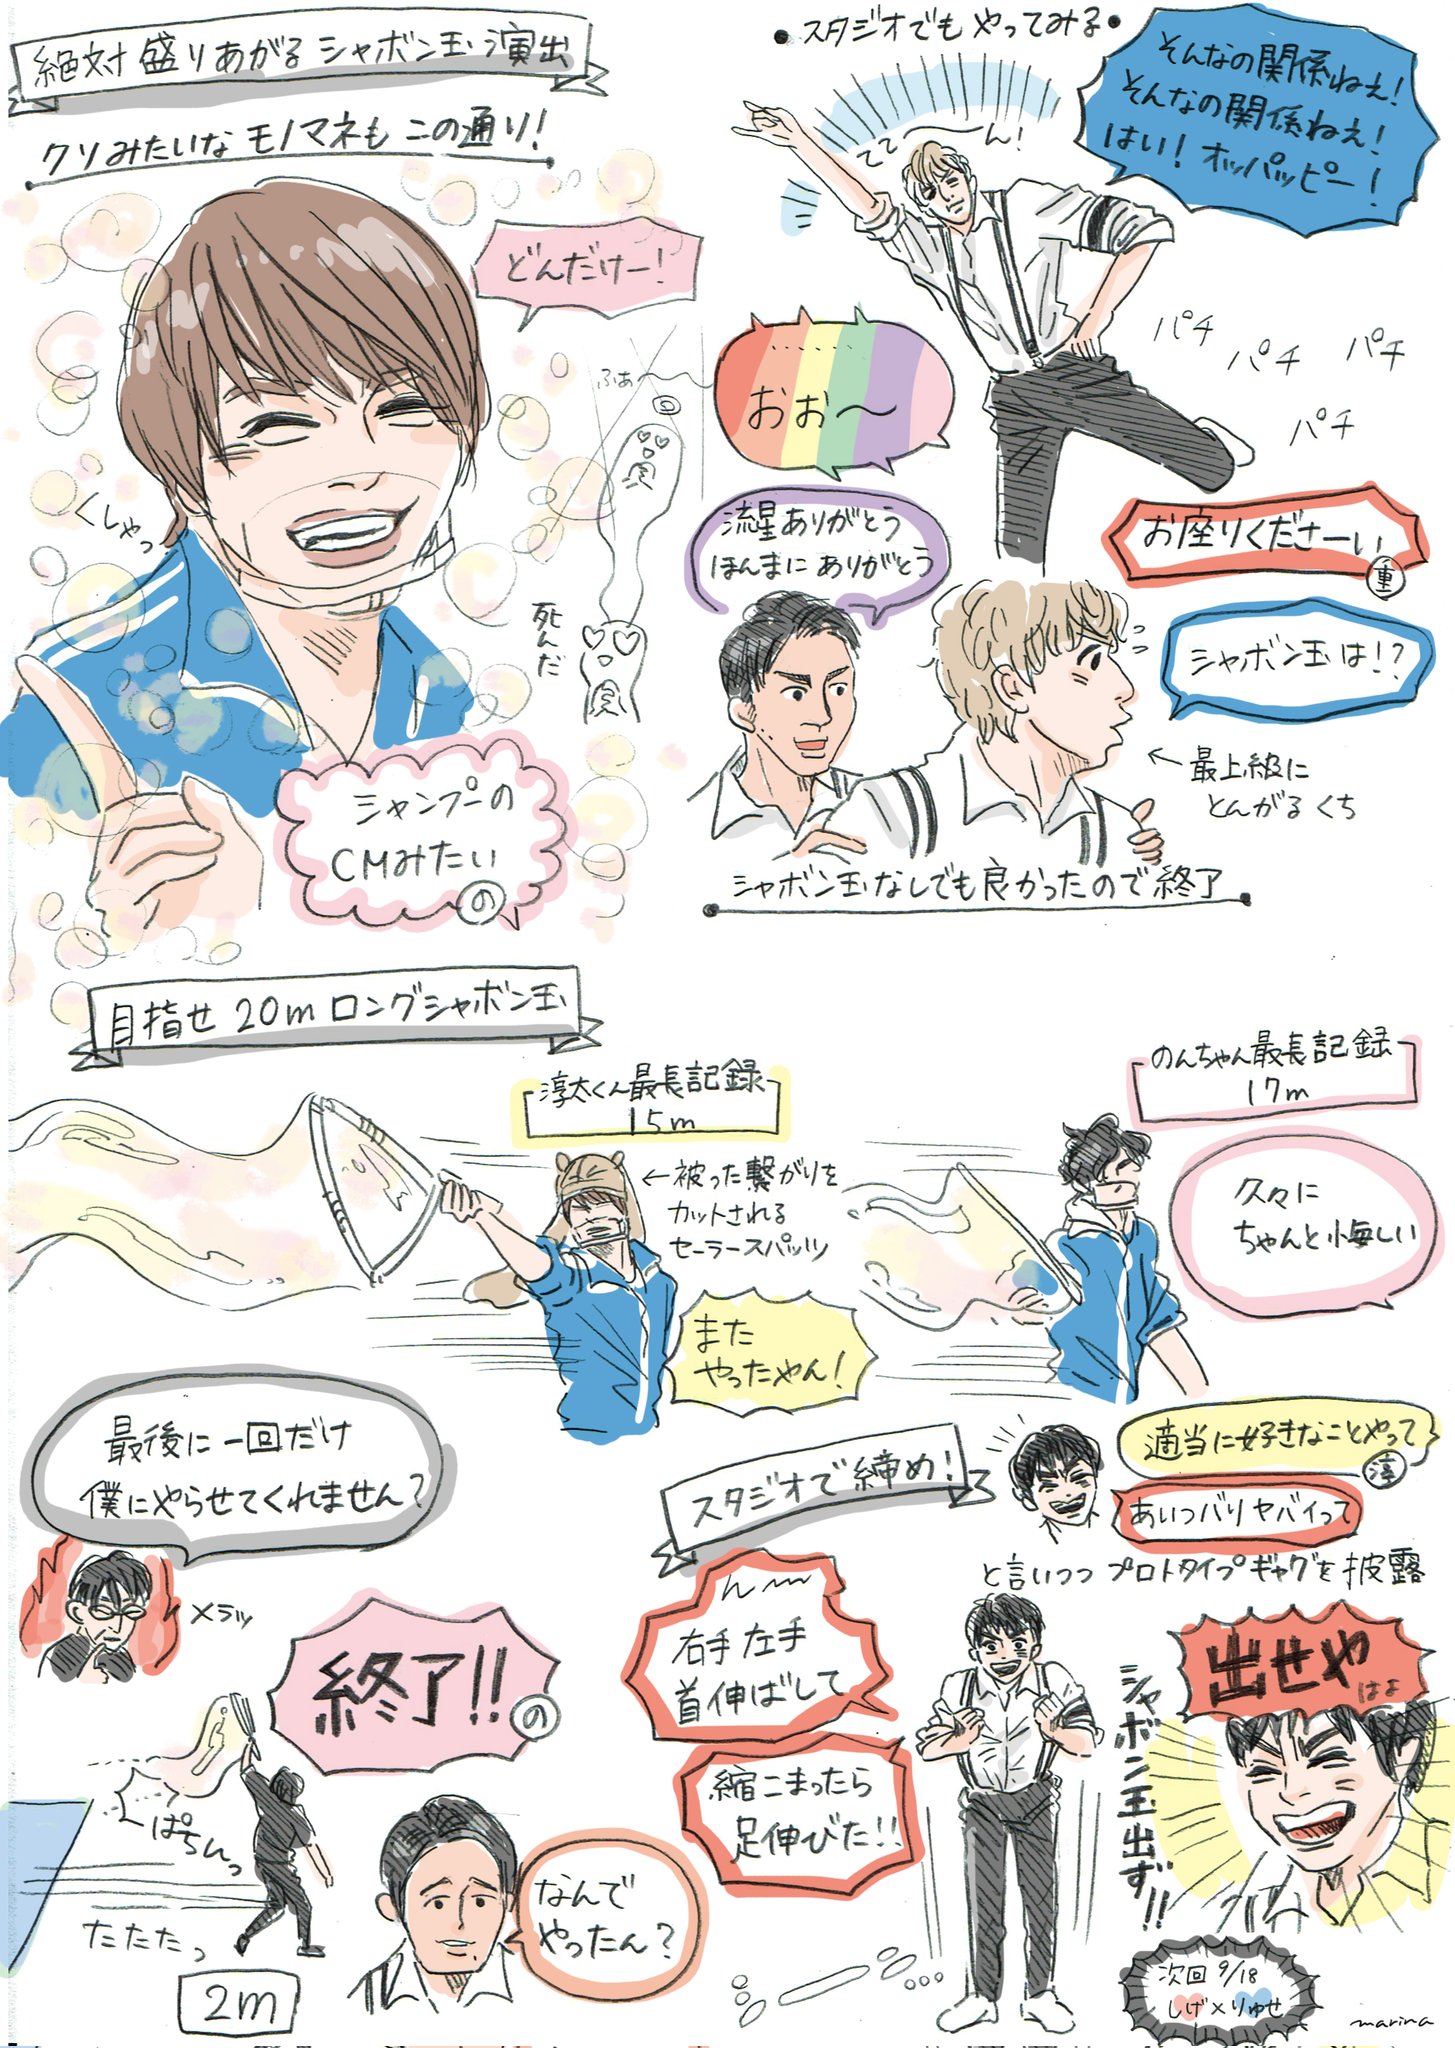 絶対盛りあがるシャボン玉演出
クソみたいなモノマネもこの通り!
どんだけー!
くしゃっ
ふぁ〜
死んだ
シャンプーの
CMみたい
の
•スタジオでもやってみる•
そんなの関係ねえ!
そんなの関係ねえ!
はい! オッパッピー!
てててーん!
パチ
パチ
パチ
パチ
……
おぉ〜
流星ありがとう
ほんまにありがとう
お座りくださーい
重
シャボン玉は!?
←最上級に
とんがるくち
シャボン玉なしでも良かったので終了
目指せ20mロングシャボン玉
淳太くん最長記録
15m
←被った繋がりを
カットされる
セーラースパッツ
また
やったやん!
のんちゃん最長記録
17m
久々に
ちゃんと悔しい
最後に一回だけ
僕にやらせてくれません?
メラッ
終了!!
の
ぱちんっ
たたたっ
2m
なんで
やったん?
スタジオで締め!
適当に好きなことやって
淳
あいつバリヤバイって
と言いつつプロトタイプギャグを披露
んー
右手左手
首伸ばして
縮こまったら
足伸びた!!
出せや
はよ
シャボン玉出ず!!
次回9/18
しげ×りゅせ
marina